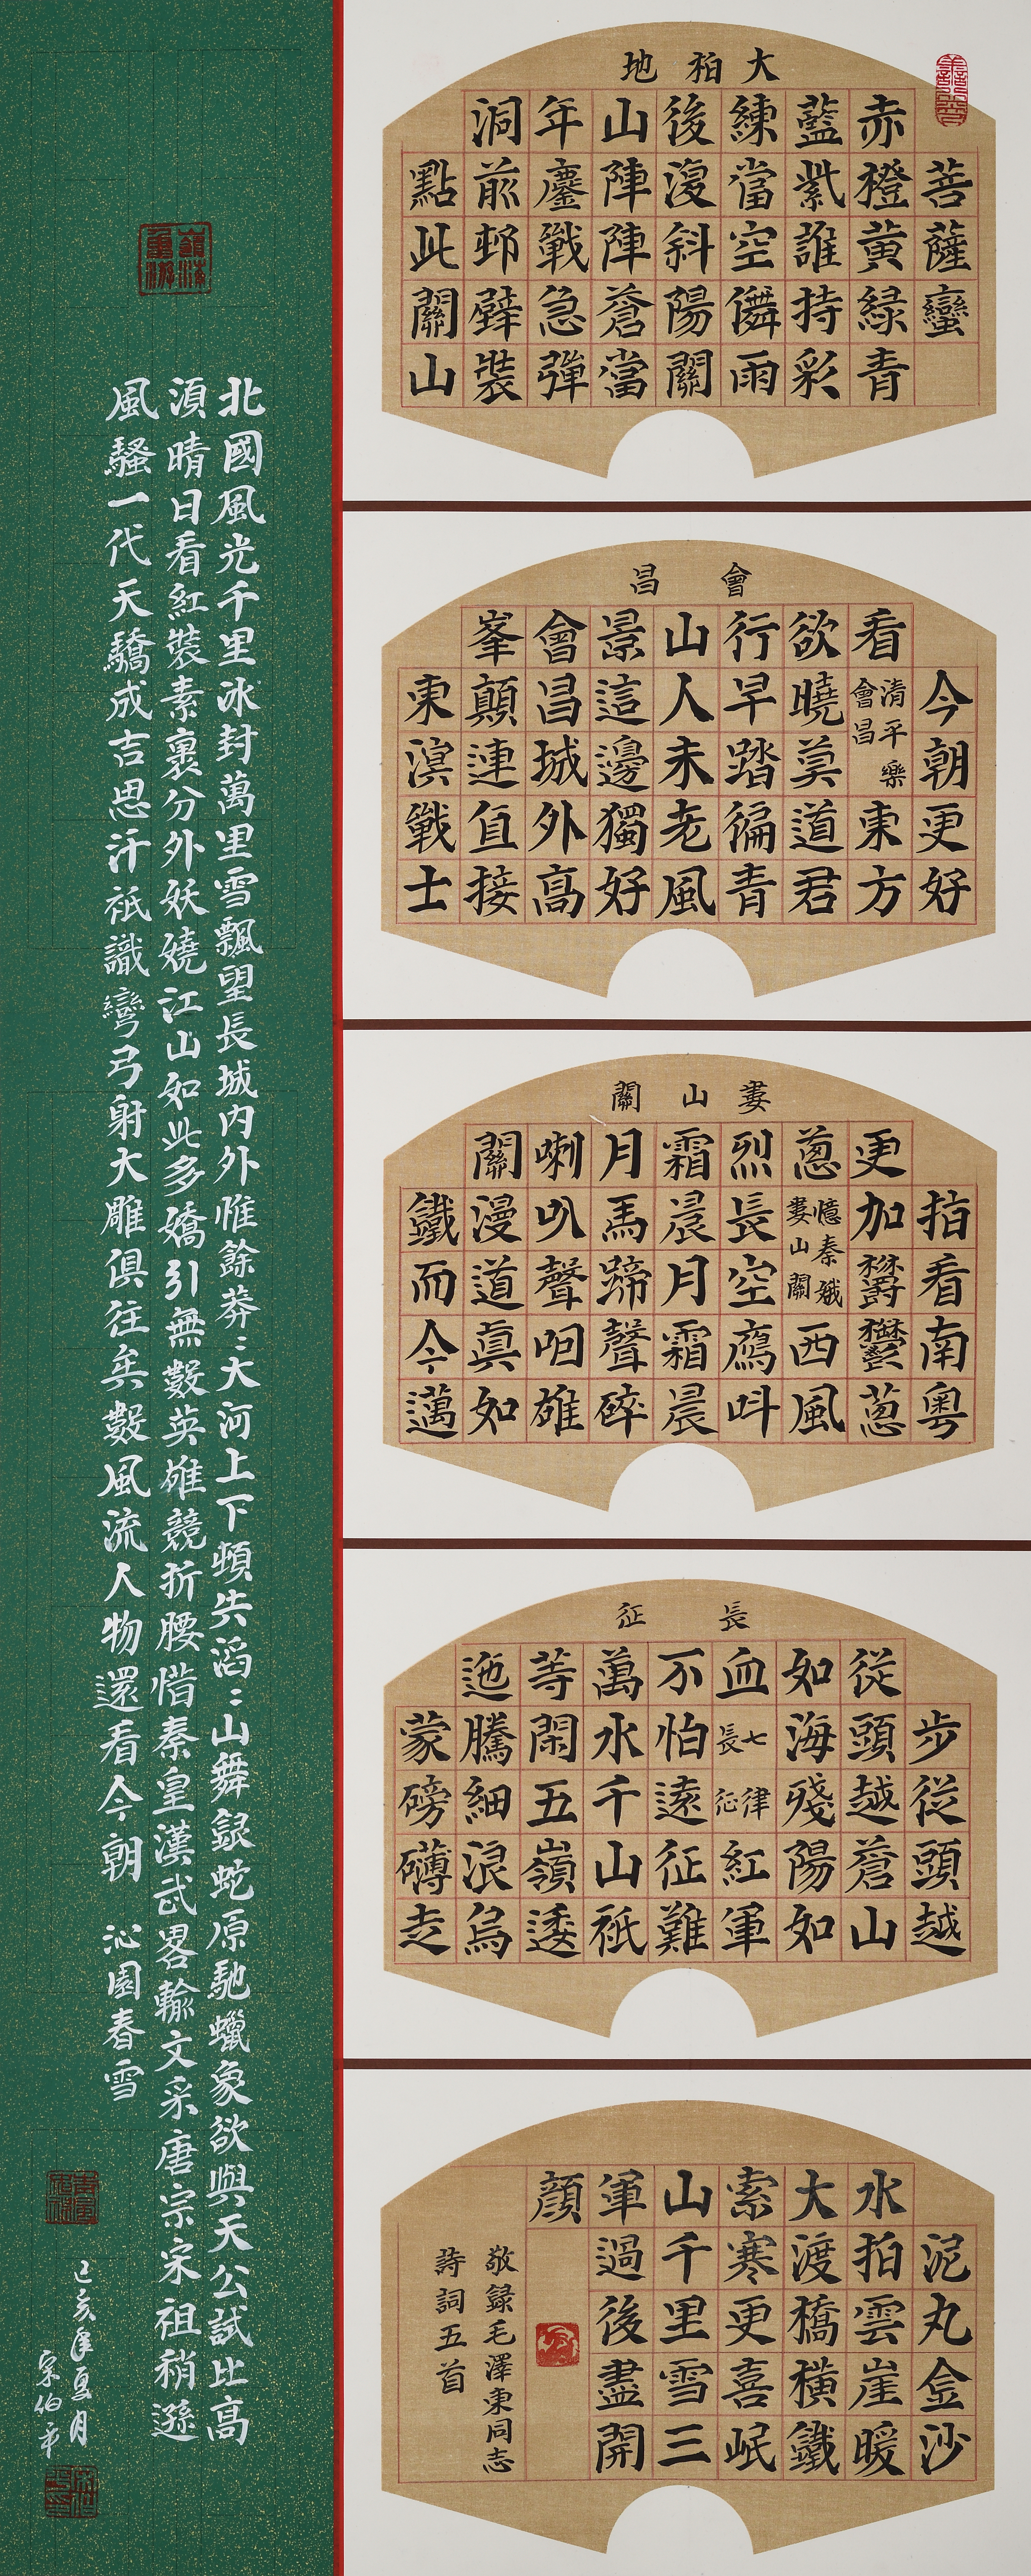 大柏地
菩薩蠻
赤橙黃緑青
藍紫誰持彩
練當空儛雨
後復斜陽關
山陣陣蒼當
年鏖戰急彈
洞前邨壁裝
點此關山
會昌
今朝更好
看清平樂會昌東方
欲曉莫道君
行早踏徧青
山人未老風
景這邊獨好
會昌城外高
峯顛連直接
東溟戰士
婁山關
指看南粵
更加鬱鬱蔥
蔥憶秦娥婁山關西風
烈長空鴈叫
霜晨月霜晨
月馬蹄聲碎
喇叭聲咽雄
關漫道真如
鐵而今邁
長征
步從頭越
從頭越蒼山
如海殘陽如
血七律長征紅軍
不怕遠征難
萬水千山祇
等閑五嶺逶
迤騰細浪烏
蒙磅礴走
泥丸金沙
水拍雲崖暖
大渡橋橫鐵
索寒更喜岷
山千里雪三
軍過後盡開
顏
敬録毛澤東同志
詩詞五首
北國風光千里冰封萬里雪飄望長城内外惟餘莽〻大河上下頓失滔〻山舞銀蛇原馳蠟象欲與天公試比高
須晴日看紅裝素裹分外妖嬈江山如此多嬌引無數英雄競折腰惜秦皇漢武畧輸文采唐宗宋祖稍遜
風騷一代天驕成吉思汗祇識彎弓射大雕俱往矣數風流人物還看今朝 沁園春雪
己亥年夏月
宋伯平